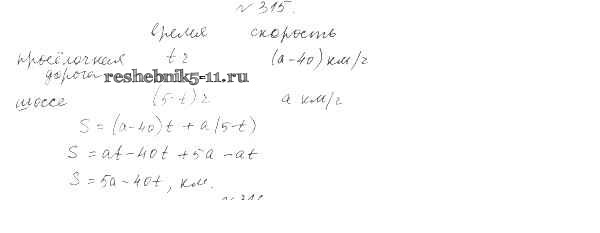 № 315.
время скорость
просёлочная t г (a-40) км/г
дорога reshebnik5-11.ru
шоссе (5-t) г a км/г
S = (a-40)t + a(5-t)
S = at - 40t + 5a - at
S = 5a - 40t, км.